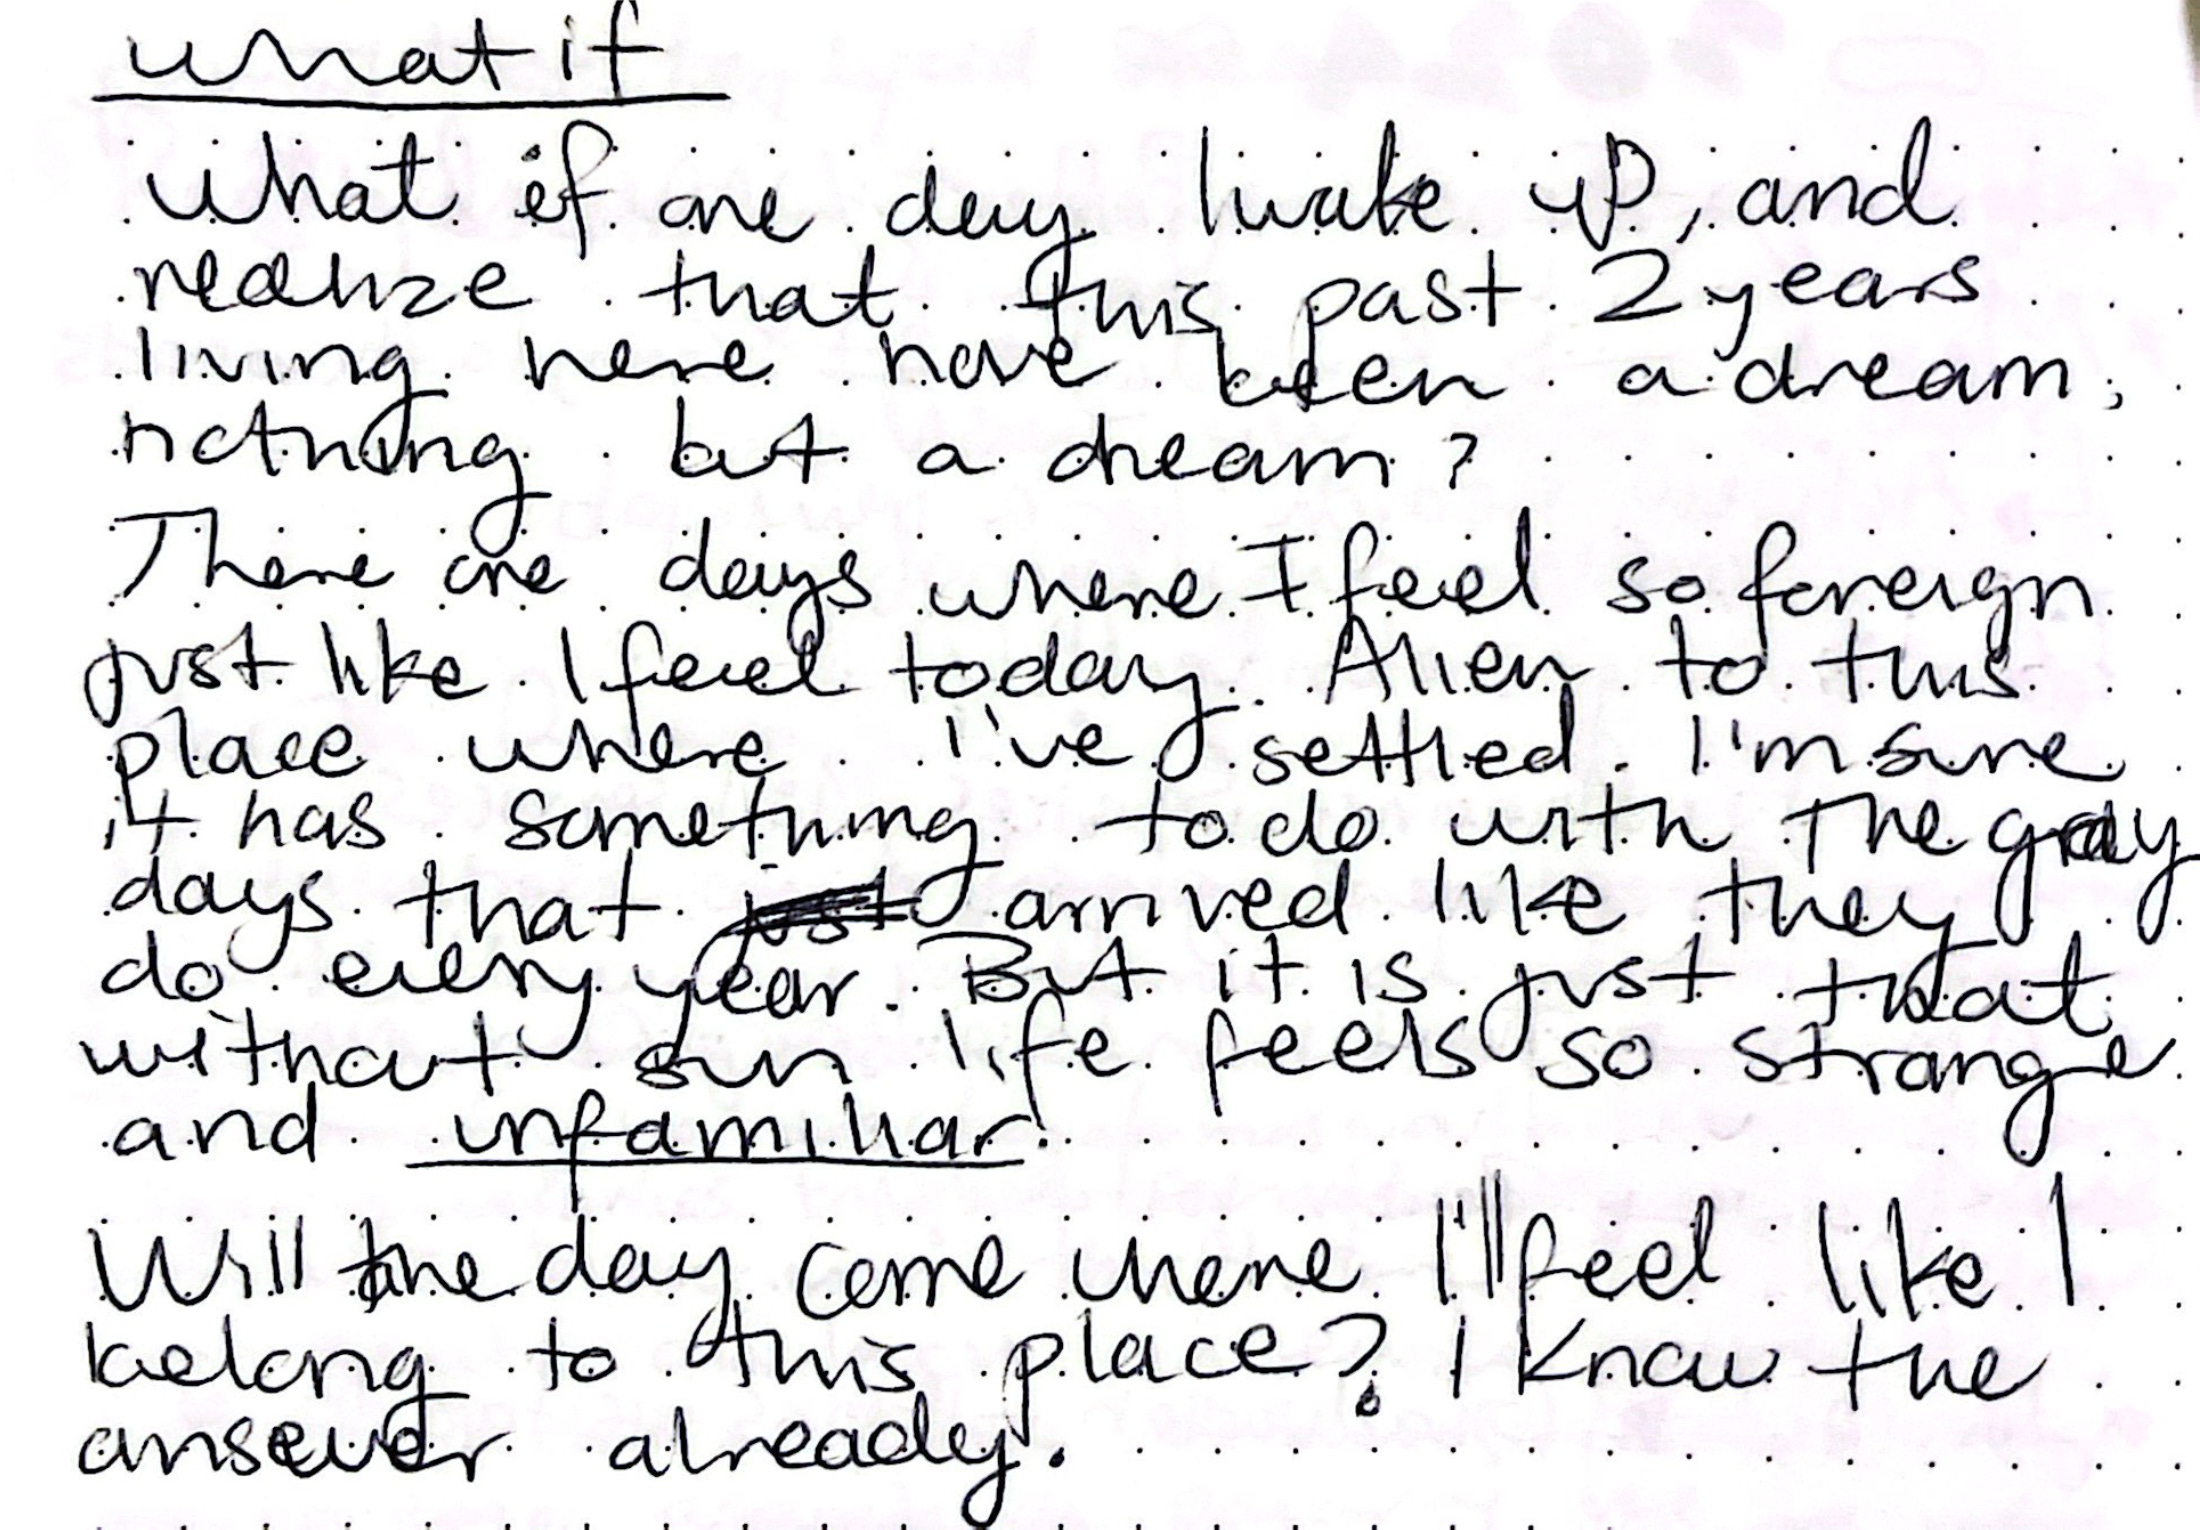 what if
what if one day I wake up, and
realize that this past 2 years
living here have been a dream,
nothing but a dream?
There are days where I feel so foreign
just like I feel today. Alien to this
place where I've settled. I'm sure
it has something to do with the gray
days that just arrived like they
do every year. But it is just that
without sun life feels so strange
and unfamiliar.
Will the day come where I'll feel like I
belong to this place? I know the
answer already.